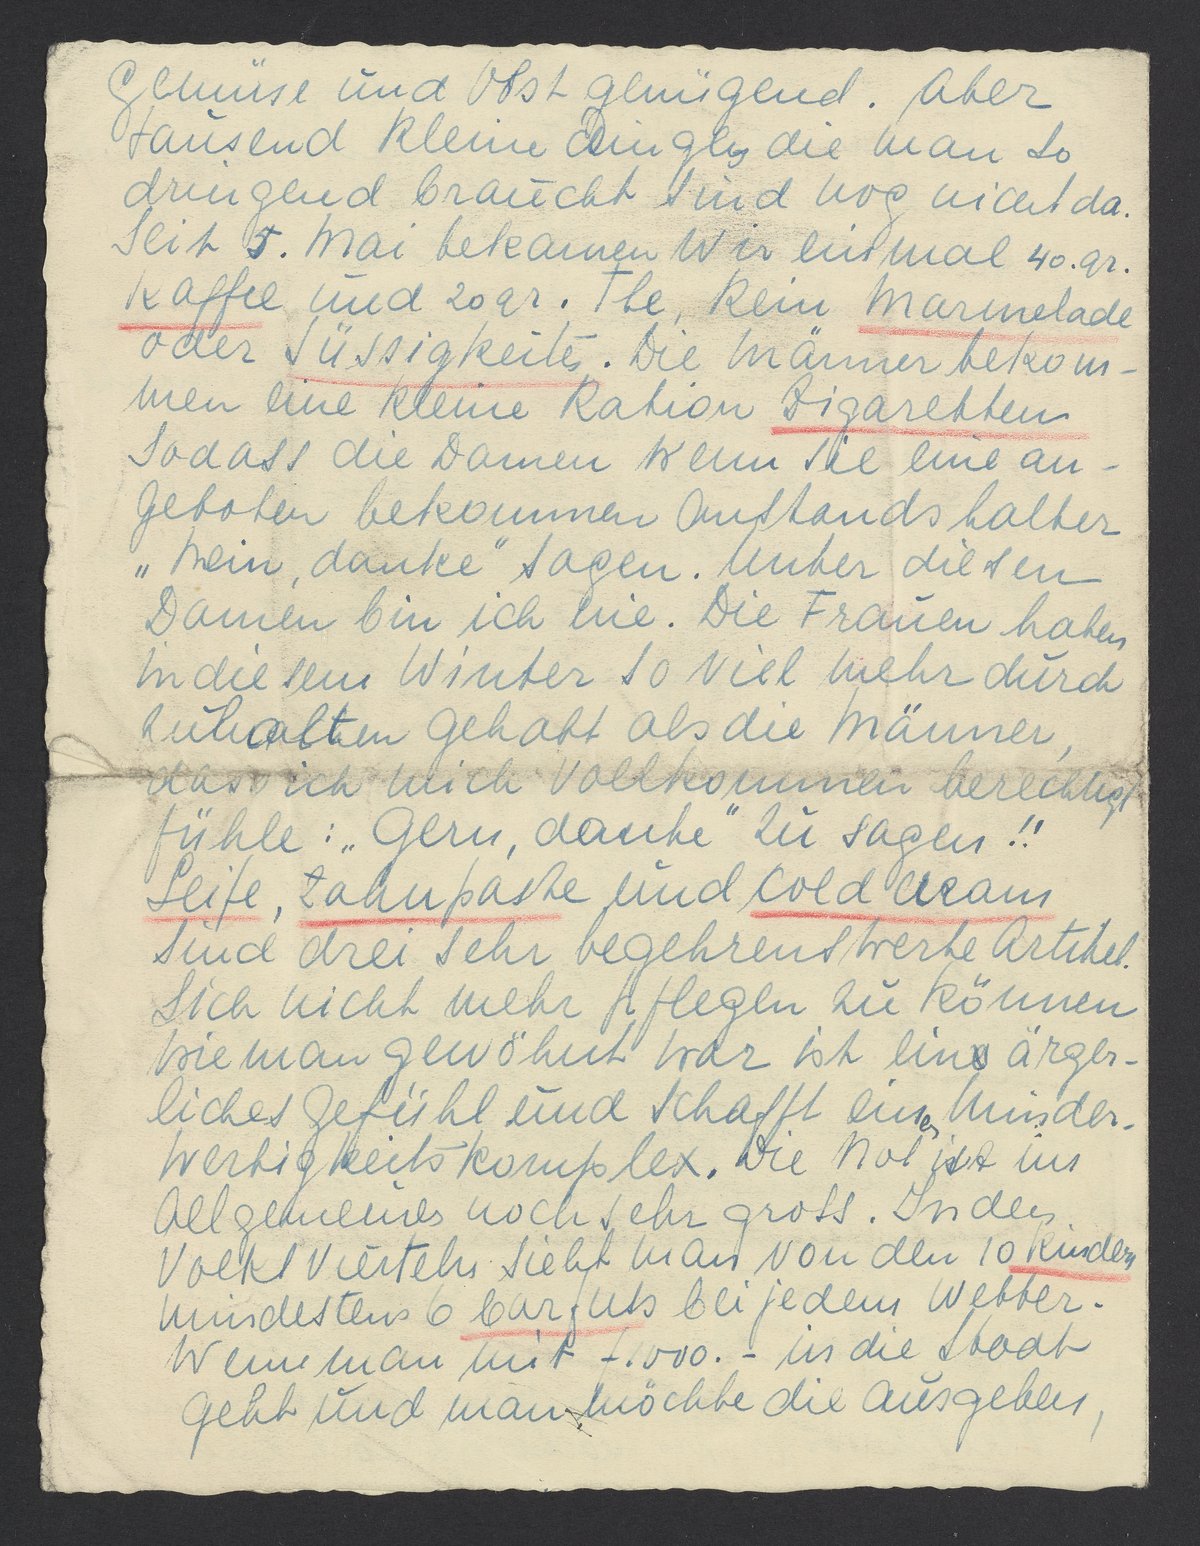 Gemüse und Obst genügend. Aber
tausend kleine Dinge, die man so
dringend braucht sind nog nicht da.
Seit 5. Mai bekamen wir einmal 40.gr.
Kaffee und 20gr. The, kein Marmelade
oder Süssigkeiten. Die Männer bekom-
men eine kleine Ration Zigaretten
sodass die Damen wenn sie eine an-
geboten bekommen anstandshalber
„Nein, danke" sagen. Unter diesen
Damen bin ich nie. Die Frauen haben
in diesem Winter so viel mehr durch
zuhalten gehabt als die Männer,
dass ich mich vollkommen berechtigt
fühle: „Gern, danke" zu sagen!!
Seife, Zahnpaste und Cold Cream
sind drei sehr begehrenswerte Artikel.
Sich nicht mehr pflegen zu können
wie man gewöhnt war ist ein ärger-
liches Gefühl und schafft einen Minder-
wertigkeitskomplex. Die Not ist im
Allgemeinen noch sehr gross. In den
Volksvierteln sieht man von den 10 Kindern
mindestens 6 barfuss bei jedem Wetter.
Wenn man mit f 1000.- in die Stadt
geht und man möchte die ausgeben,